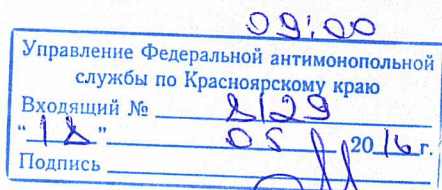 09:00
Управление Федеральной антимонопольной
службы по Красноярскому краю
Входящий № 8129
"18" 05 2016 г.
Подпись